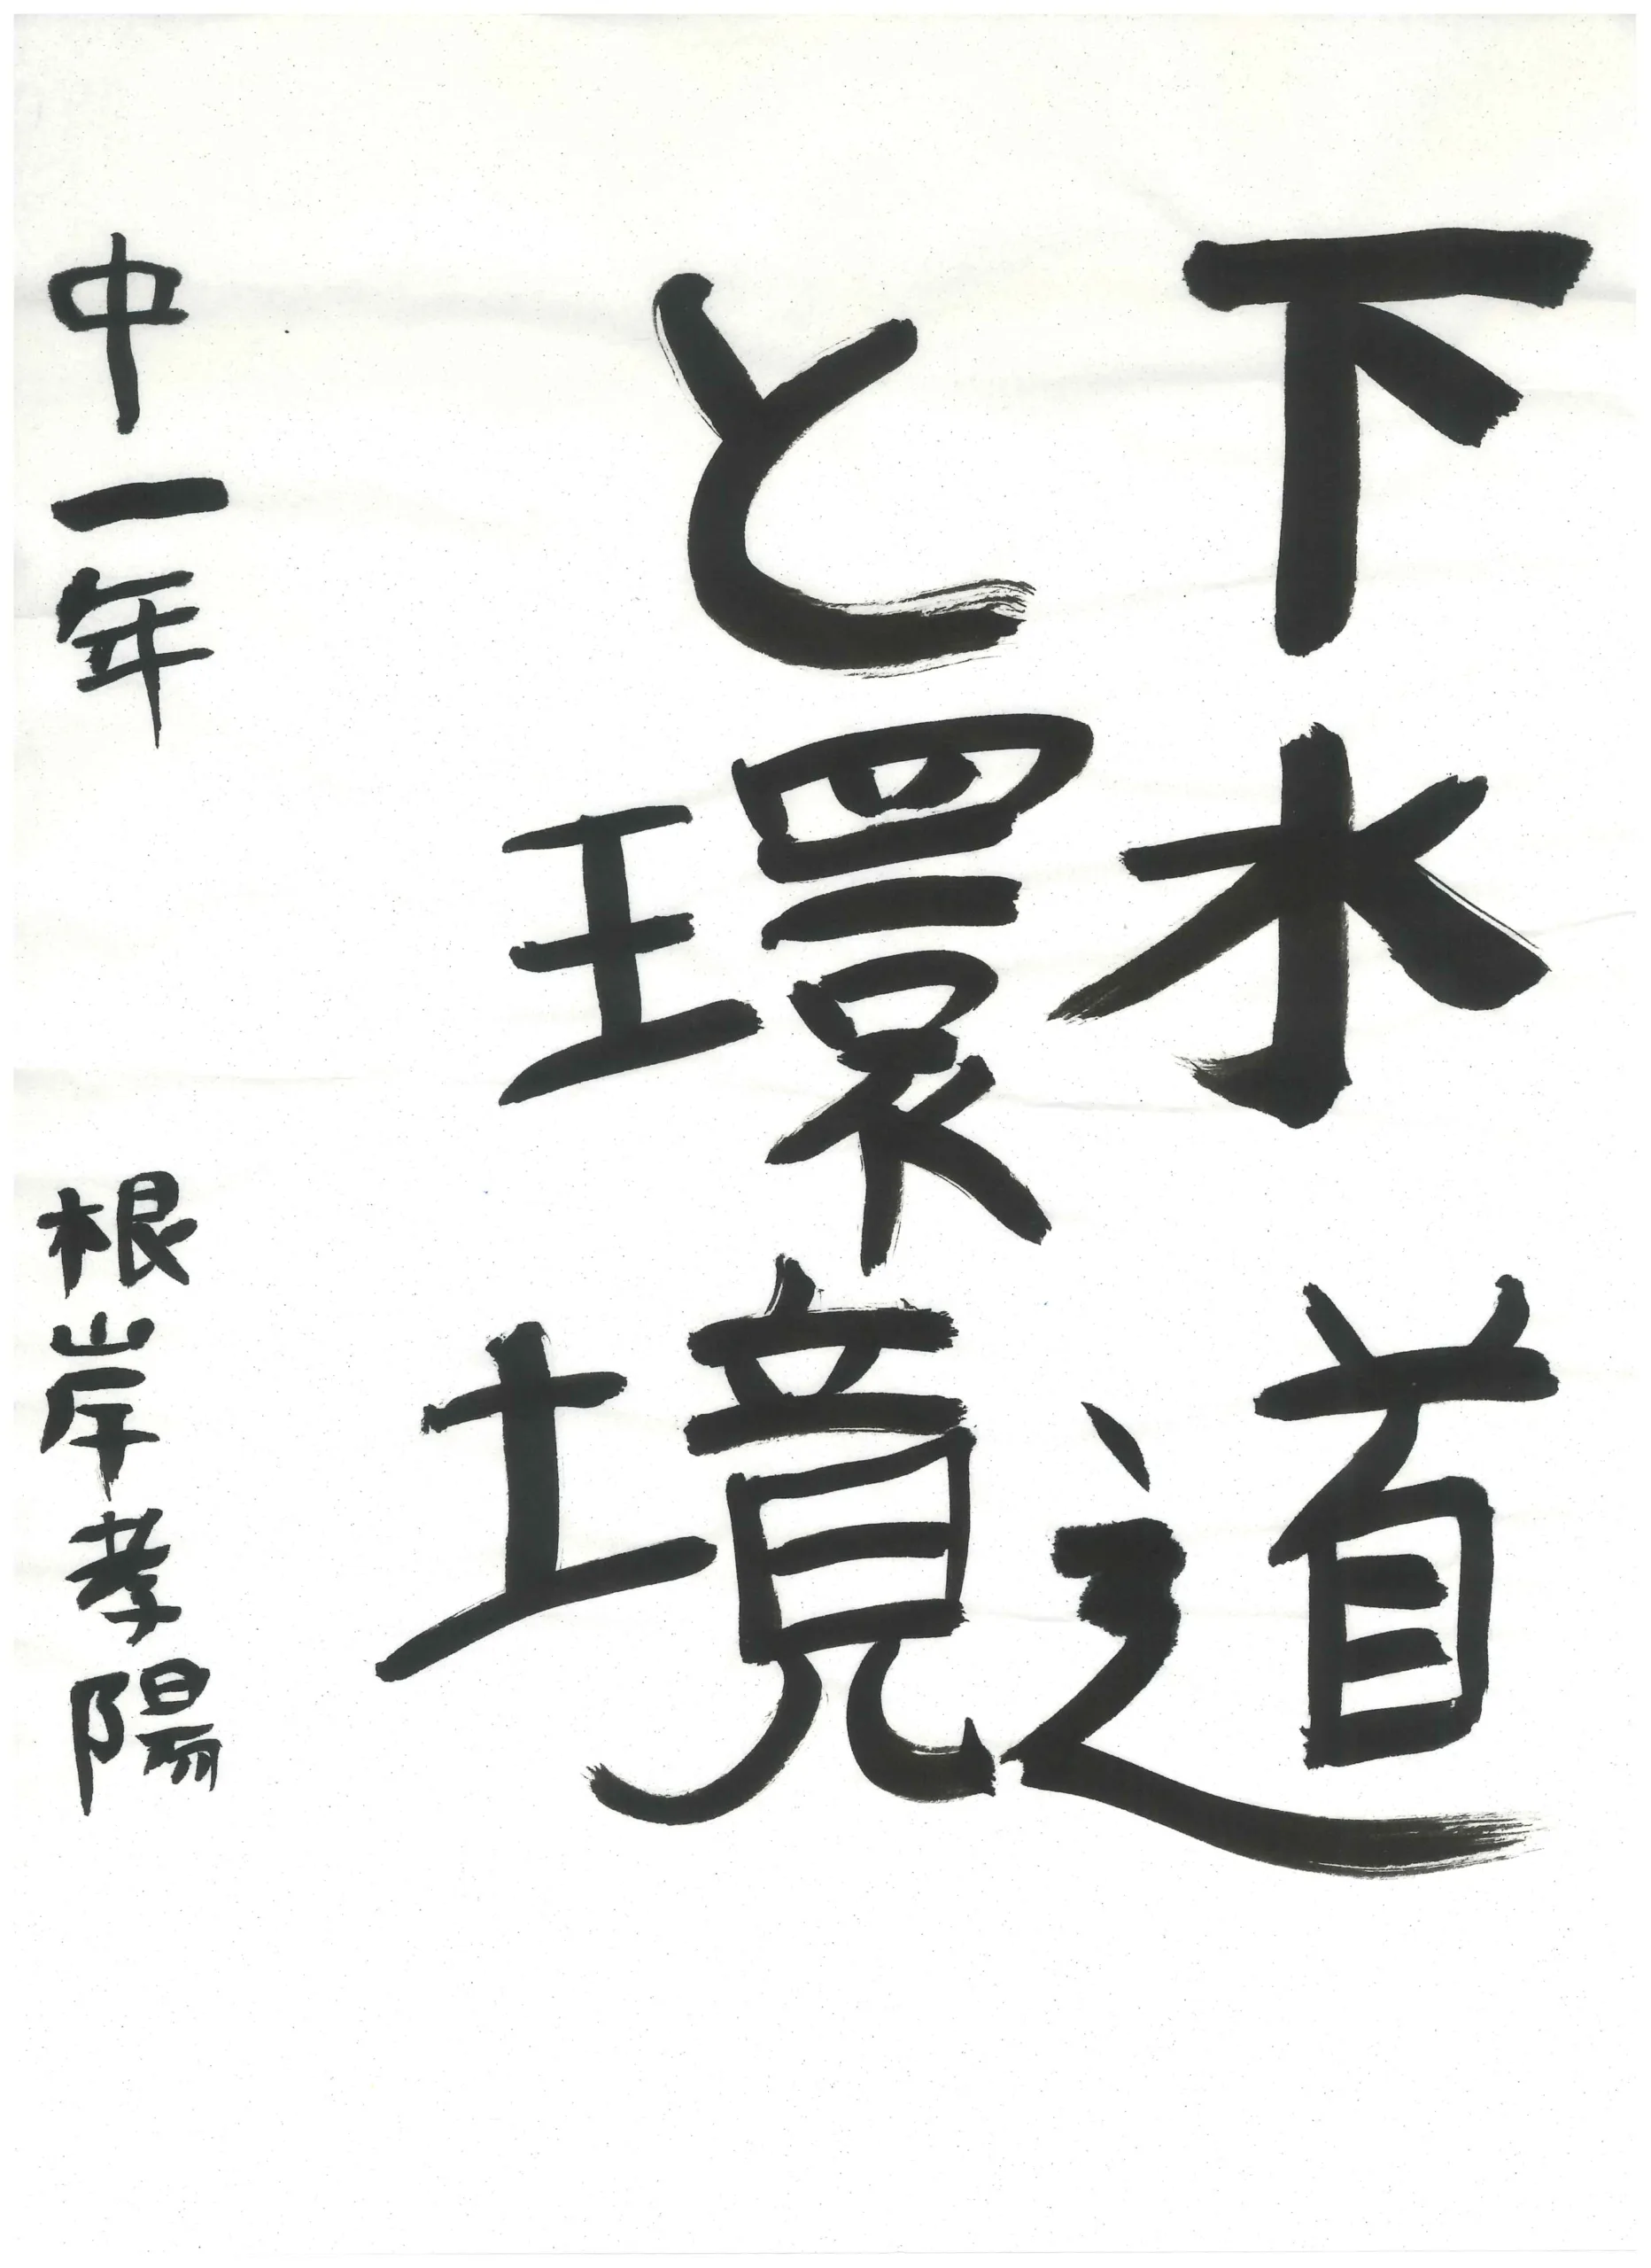 下水道
と環境
中一年 根岸孝陽